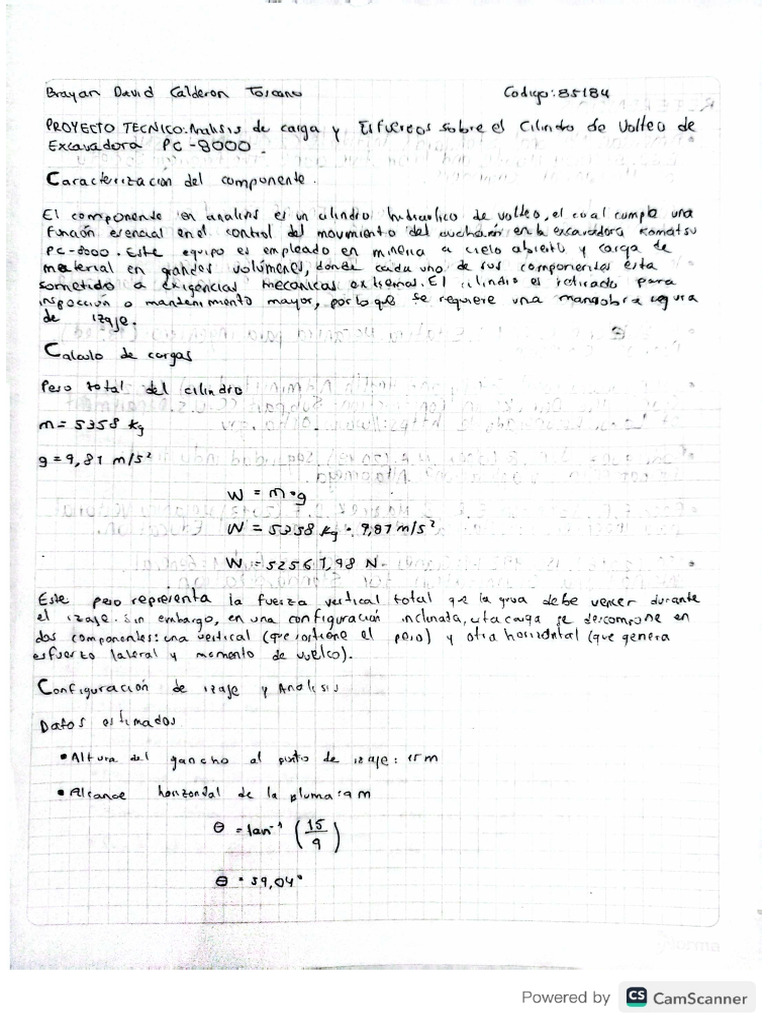 Brayan David Calderon Toscano Codigo: 85184
PROYECTO TECNICO: Analisis de carga y Esfuerzos sobre el Cilindro de Volteo de
Excavadora PC-8000.
Caracterización del componente.
El componente en analisis es un cilindro hidraulico de volteo, el cual cumple una
función esencial en el control del movimiento del cucharón en la excavadora Komatsu
PC-8000. Este equipo es empleado en mineria a cielo abierto y carga de
material en grandes volúmenes, donde cada uno de sus componentes esta
sometido a exigencias mecanicas extremas. El cilindro es retirado para
inspección o mantenimiento mayor, por lo que se requiere una maniobra segura
de izaje.
Calculo de cargas
Peso total del cilindro
m = 5358 kg
g = 9,81 m/s²
W = m•g
W = 5358 kg • 9,81 m/s²
W = 52561,98 N
Este peso representa la fuerza vertical total que la grua debe vencer durante
el izaje. Sin embargo, en una configuración inclinada, esta carga se descompone en
dos componentes: una vertical (que sostiene el peso) y otra horizontal (que genera
esfuerzo lateral y momento de vuelco).
Configuración de izaje y Analisis
Datos estimados
• Altura del gancho al punto de izaje: 15 m
• Alcance horizontal de la pluma: 9 m
θ = tan⁻¹ (15/9)
θ = 59,04°
Norma
Powered by CS CamScanner